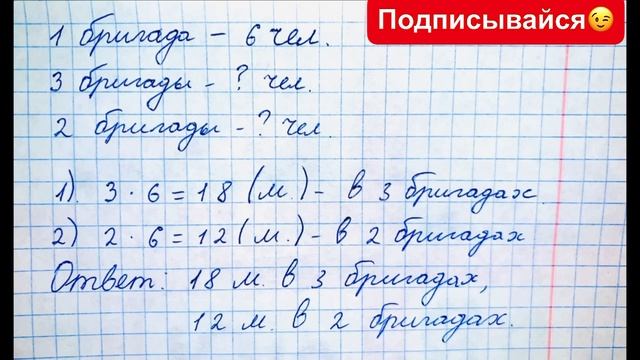 Подписывайся😉
1 бригада – 6 чел.
3 бригады - ? чел.
2 бригады - ? чел.
1) 3 · 6 = 18 (м.) - в 3 бригадах.
2) 2 · 6 = 12 (м.) - в 2 бригадах
Ответ: 18 м. в 3 бригадах,
12 м. в 2 бригадах.